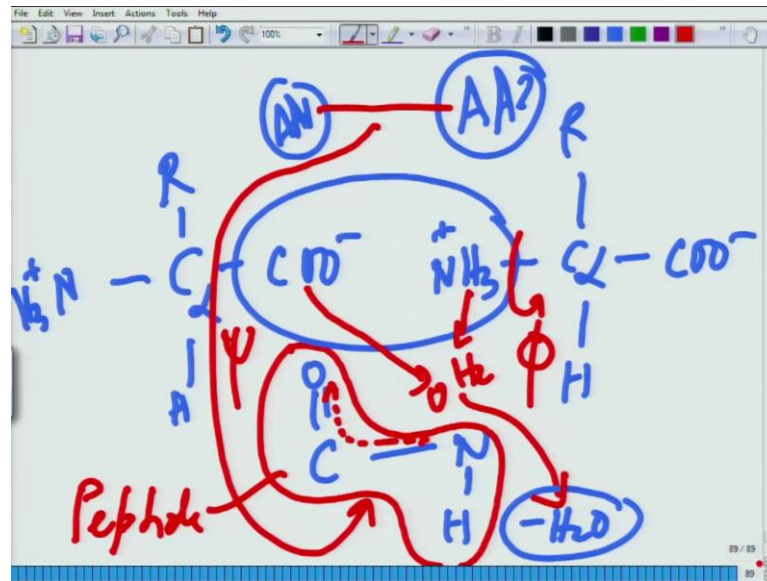 File Edit View Insert Actions Tools Help
100%
B I
AA2
R
R
H3N+ — Cα — COO-
+NH3 — Cα — COO-
ψ
O H2
φ
H
H
O
C = N
H
Peptide
-H2O
89 / 89
89